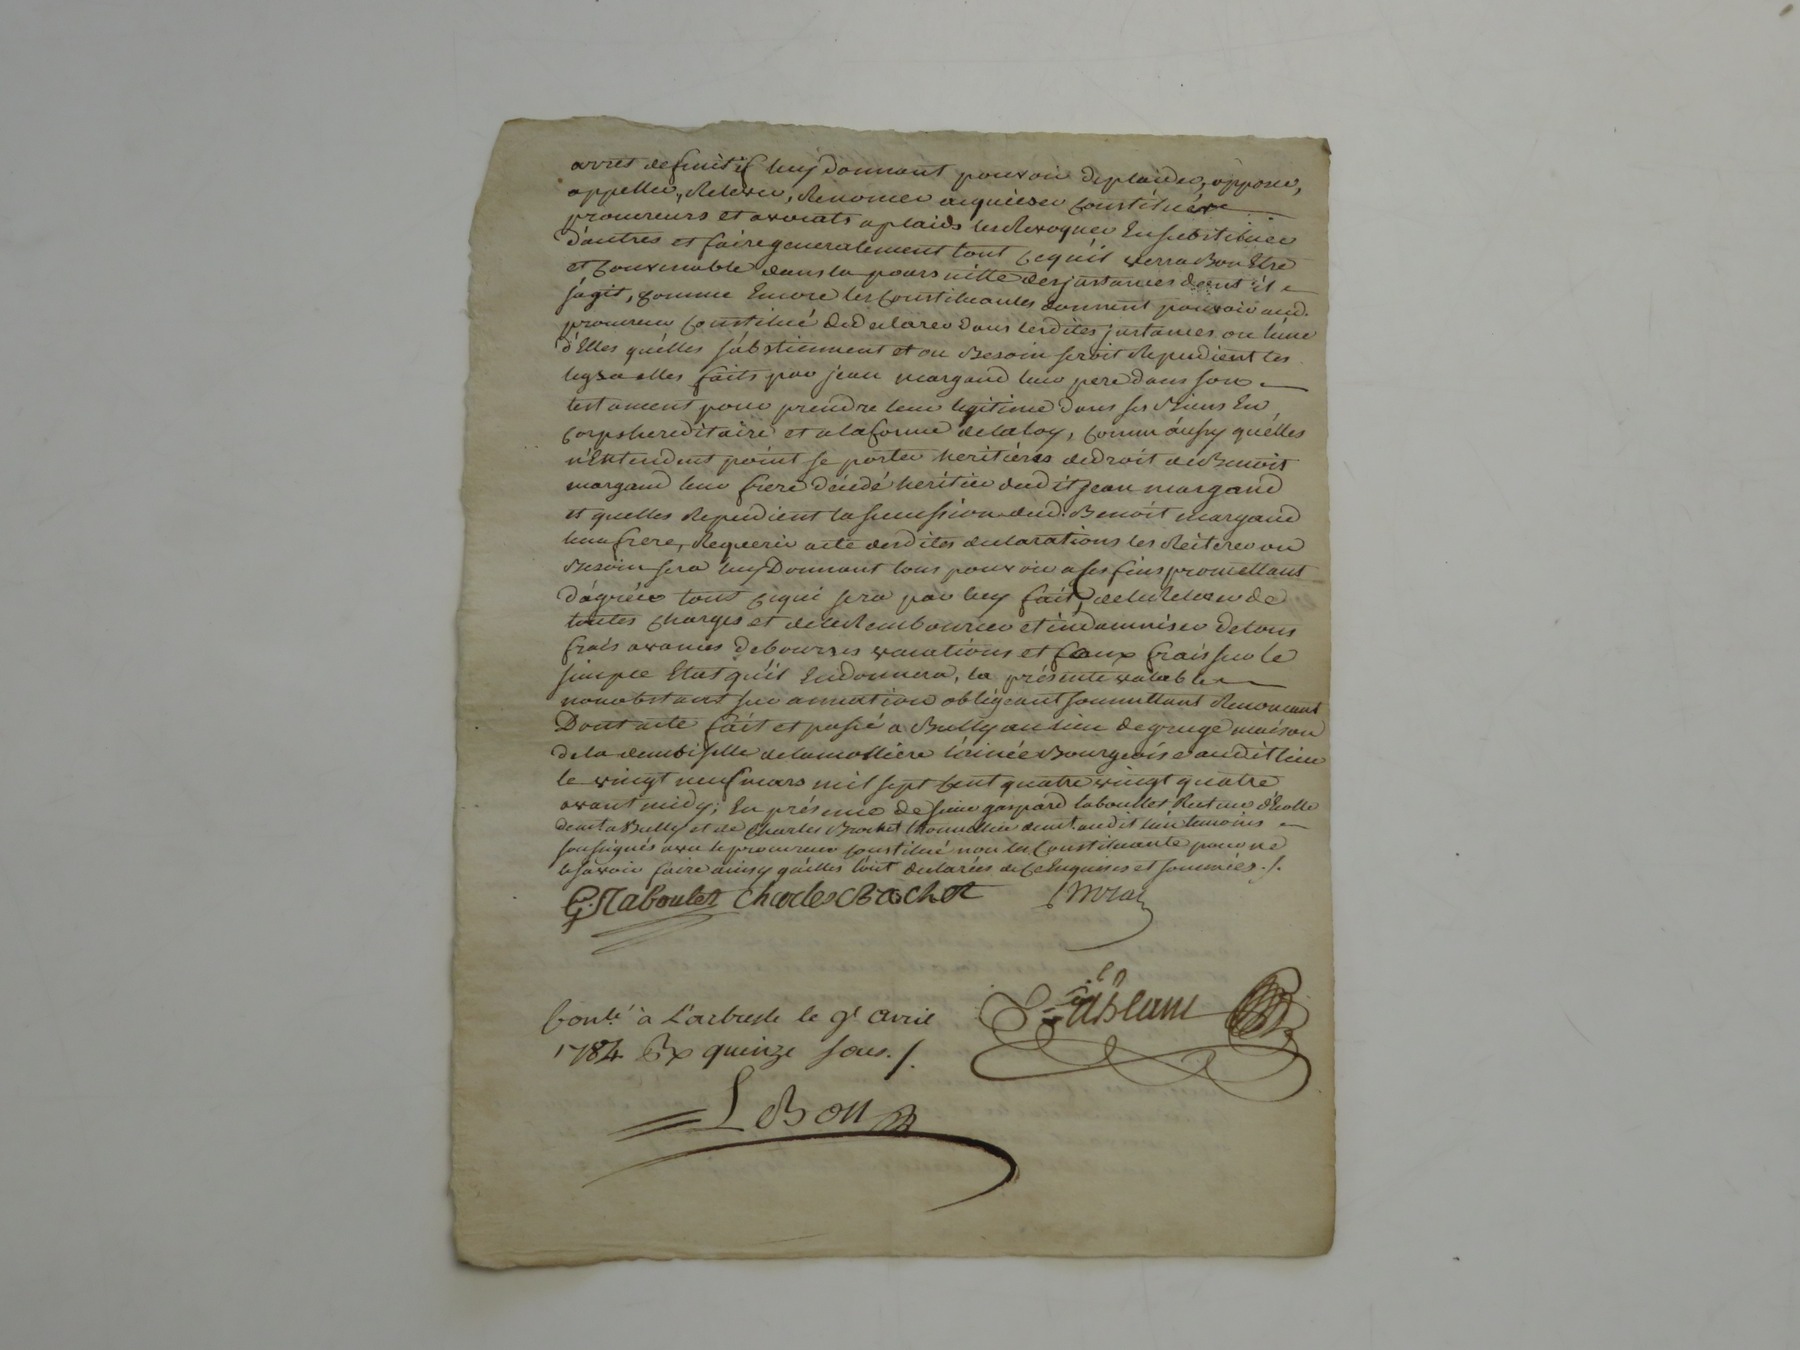 arret definitif luy donnant pouvoir de plaider, opposer,
appeller, Relever, Renoncer acquiescer Constituer
procureurs et avocats a plaids les Revoquer En substituer
d'autres et faire generalement tout ce qu'il verra Bon Etre
et Convenable dans la poursuitte des jnstances dont il
s'agit, Comme Encore les Constituantes donnent pouvoir aud.
procureur Constitué de declarer dans lesdites jnstances ou l'une
d'Elles qu'elles s'abstiennent et ou Besoin seroit Repudient les
legs a elles faits par jean margand leur pere dans son
testament pour prendre leur legitime dans ses Biens En
Corps hereditaire et a la forme de la loy, Comm'aussy qu'elles
n'Entendent point se porter heritières de droit de Benoit
margand leur frere décédé heritier dudit jean margand
et quelles Repudient la succession dud. Benoit margand
leur frere, Requerir acte desdites declarations les Reiterer ou
Besoin sera luy Donnant tous pouvoir a ses fins promettant
d'agréer tout ce qui sera par luy fait, de le Relever de
toutes charges et de le Rembourcer et indamniser de tous
frais avances debources vacations et faux frais sur le
simple Etat qu'il En donnera, la présente valable
nonobstant surannation obligeant soumettant Renoncant
Dont acte fait et passé a Bully au lieu de gruge maison
de la demoiselle de lamolliere l'ainée Bourgeoise audit lieu
le vingt neuf mars mil sept Cent quatre vingt quatre
avant midy; En présence de sieur gaspard taboullet Recteur d'Ecolle
demt a Bully et de Charles Brochet tonnellier demt audit lieu temoins
soussignés avec le procureur Constitué non les Constituante pour ne
le savoir faire ainsy qu'elles l'ont declarées de Ce Enquises et sommées ./.
G. Taboulet Charles Brochet
Contlé à L'arbresle le 9e avril
1784 Rx quinze sous ./.
LeBon